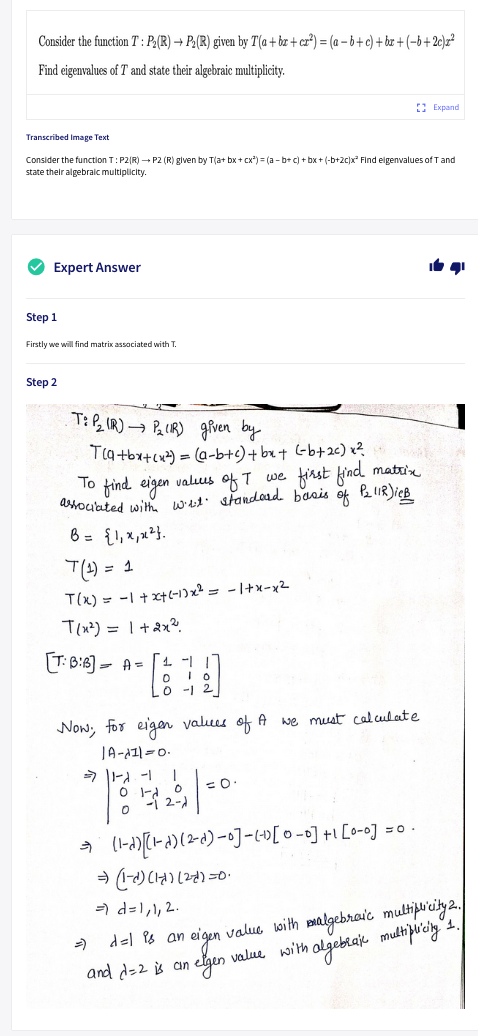 Consider the function T : P₂(ℝ) → P₂(ℝ) given by T(a + bx + cx²) = (a − b + c) + bx + (−b + 2c)x²
Find eigenvalues of T and state their algebraic multiplicity.
Expand
Transcribed Image Text
Consider the function T : P2(R) → P2 (R) given by T(a+ bx + cx²) = (a – b+ c) + bx + (-b+2c)x² Find eigenvalues of T and
state their algebraic multiplicity.
Expert Answer
Step 1
Firstly we will find matrix associated with T.
Step 2
T: P₂(ℝ) → P₂(ℝ) given by
T(a+bx+cx²) = (a-b+c)+bx+ (-b+2c) x².
To find eigen values of T we first find matrix
associated with w.r.t. standard basis of P₂(ℝ) i.e. B
B = {1, x, x²}.
T(1) = 1
T(x) = -1 + x+(-1)x² = -1+x-x²
T(x²) = 1+2x².
[T:B:B] = A = [1 -1 1
0 1 0
0 -1 2]
Now, for eigen values of A we must calculate
|A-λI|=0.
⇒ |1-λ -1 1
0 1-λ 0
0 -1 2-λ| = 0.
⇒ (1-λ)[(1-λ)(2-λ)-0]-(-1)[0-0]+1[0-0] = 0.
⇒ (1-λ)(1-λ)(2-λ)=0.
⇒ λ=1,1,2.
⇒ λ=1 is an eigen value with algebraic multiplicity 2.
and λ=2 is an eigen value with algebraic multiplicity 1.